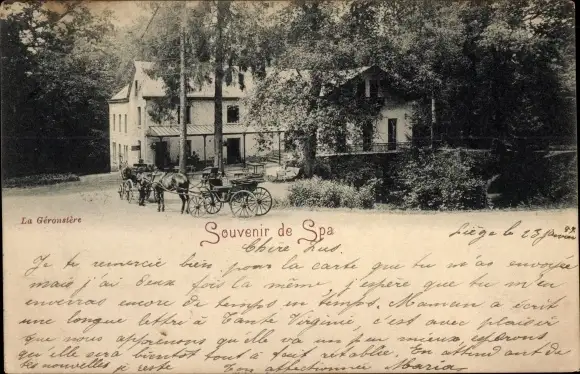 La Géronstère
Souvenir de Spa
Liège le 23 Janvier 99.
Chère Lus.
Je te remercie bien pour la carte que tu m'as envoyée
mais j'ai deux fois la même, j'espère que tu m'en
enverras encore de temps en temps. Maman a écrit
une longue lettre à Tante Virginie, c'est avec plaisir
que nous apprenons qu'elle va un peu mieux, espérons
qu'elle sera bientôt tout à fait rétablie. En attendant de
tes nouvelles je reste Ton affectionnée Maria